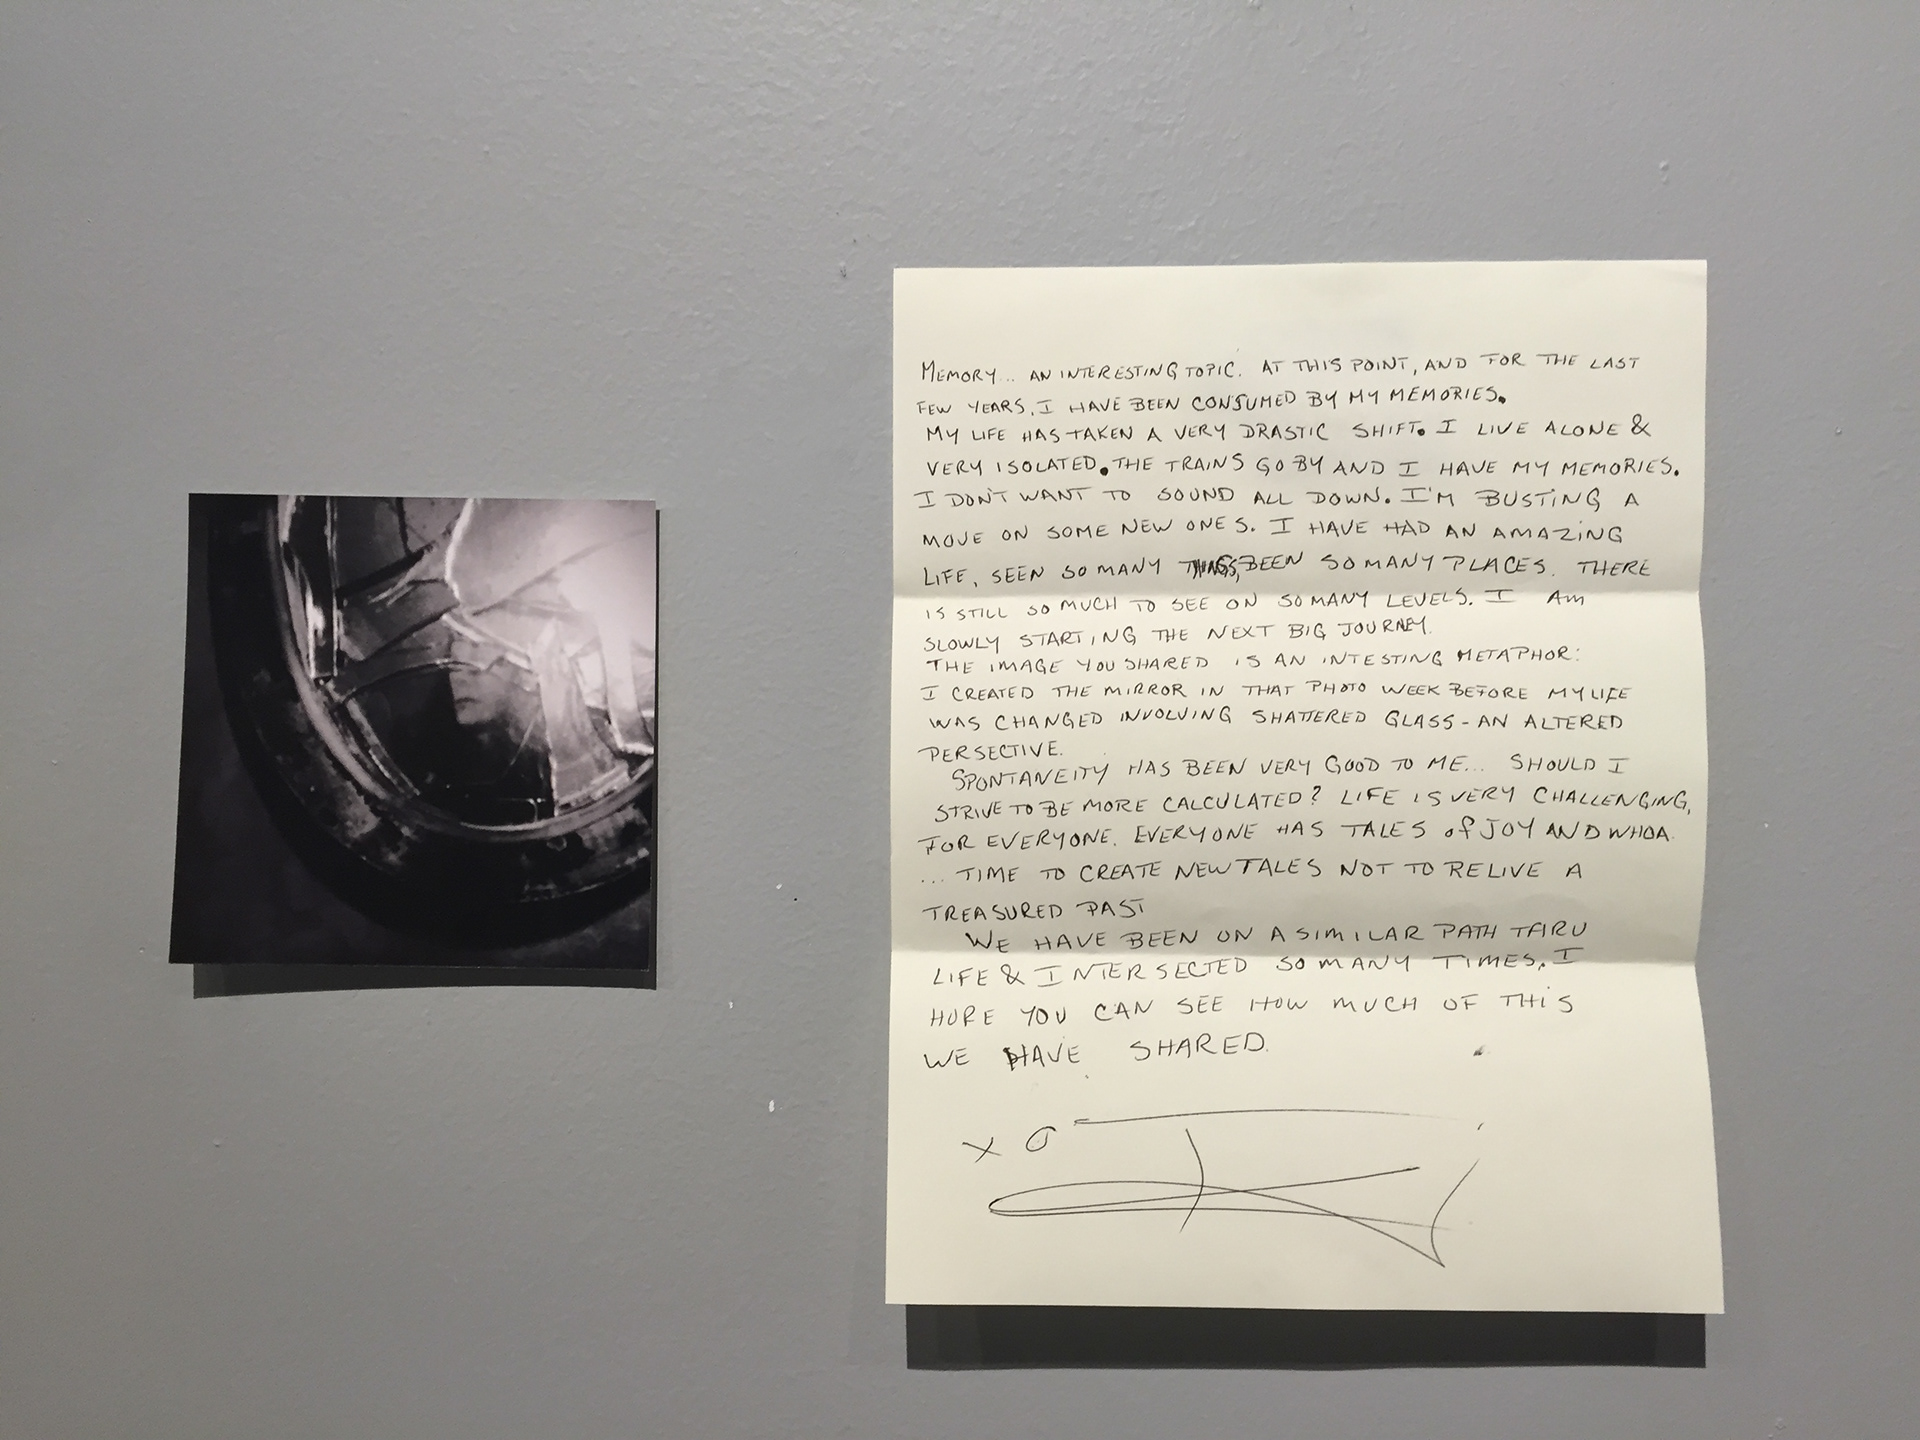 MEMORY.. AN INTERESTING TOPIC. AT THIS POINT, AND FOR THE LAST
FEW YEARS, I HAVE BEEN CONSUMED BY MY MEMORIES.
MY LIFE HAS TAKEN A VERY DRASTIC SHIFT. I LIVE ALONE &
VERY ISOLATED. THE TRAINS GO BY AND I HAVE MY MEMORIES.
I DON'T WANT TO SOUND ALL DOWN. I'M BUSTING A
MOVE ON SOME NEW ONES. I HAVE HAD AN AMAZING
LIFE, SEEN SO MANY THINGS, BEEN SO MANY PLACES. THERE
IS STILL SO MUCH TO SEE ON SO MANY LEVELS. I AM
SLOWLY STARTING THE NEXT BIG JOURNEY.
THE IMAGE YOU SHARED IS AN INTESTING METAPHOR:
I CREATED THE MIRROR IN THAT PHOTO WEEK BEFORE MY LIFE
WAS CHANGED INVOLVING SHATTERED GLASS - AN ALTERED
PERSECTIVE.
SPONTANEITY HAS BEEN VERY GOOD TO ME... SHOULD I
STRIVE TO BE MORE CALCULATED? LIFE IS VERY CHALLENGING,
FOR EVERYONE. EVERYONE HAS TALES OF JOY AND WHOA.
... TIME TO CREATE NEW TALES NOT TO RELIVE A
TREASURED PAST
WE HAVE BEEN ON A SIMILAR PATH THRU
LIFE & INTERSECTED SO MANY TIMES. I
HOPE YOU CAN SEE HOW MUCH OF THIS
WE HAVE SHARED.
XO